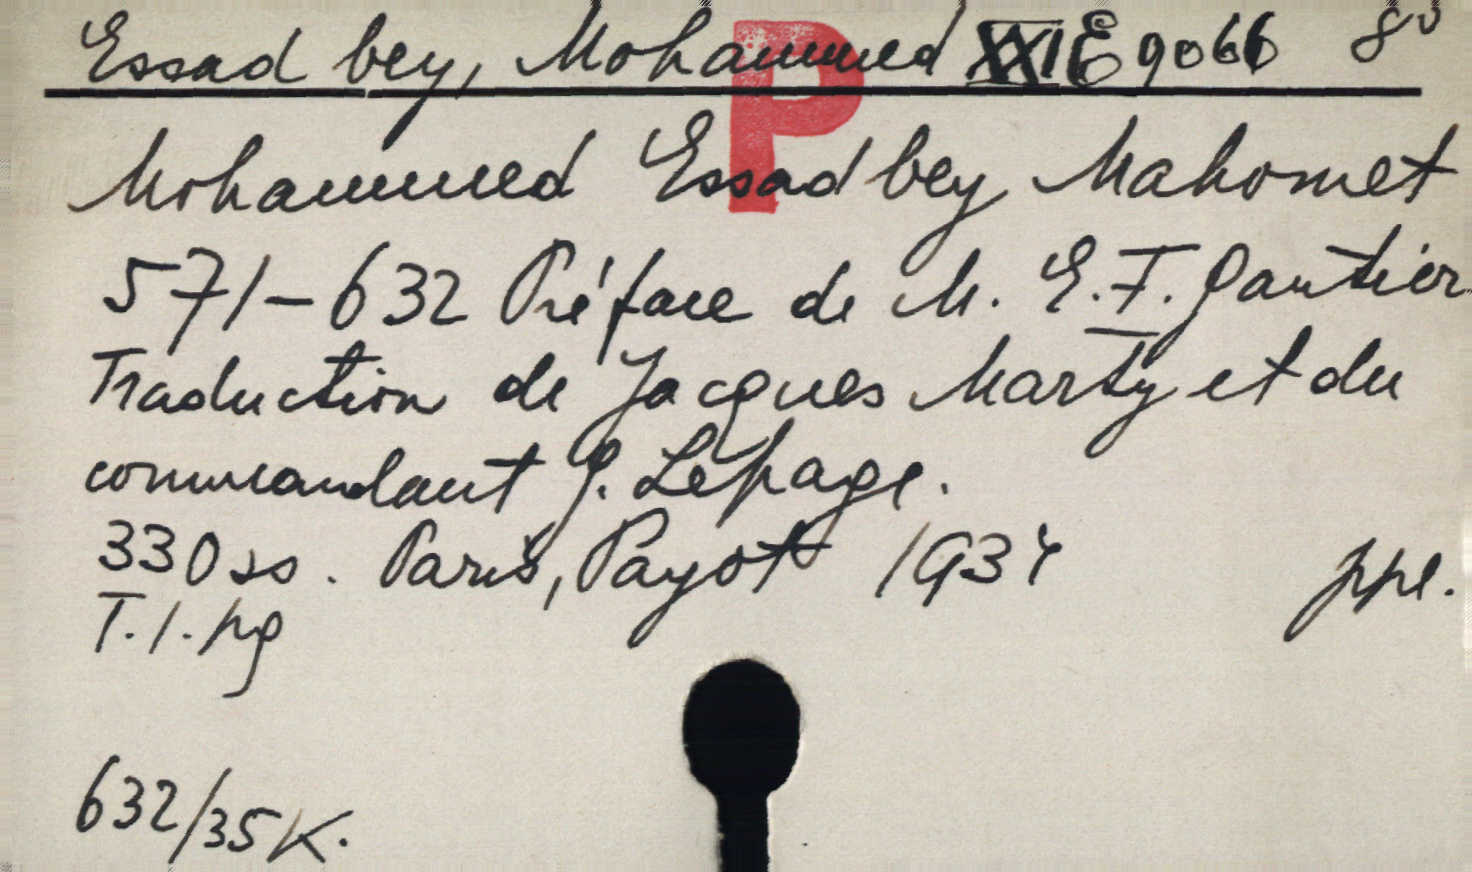 Essad bey, Mohammed XXI E 9066 8°
P
Mohammed Essad bey Mahomet
571-632 Préface de M. E.F. Gautier
Traduction de Jacques Marty et du
commandant G. Lepage.
330 ss. Paris, Payot 1934 ppl.
T. 1. ng
632/35 K.